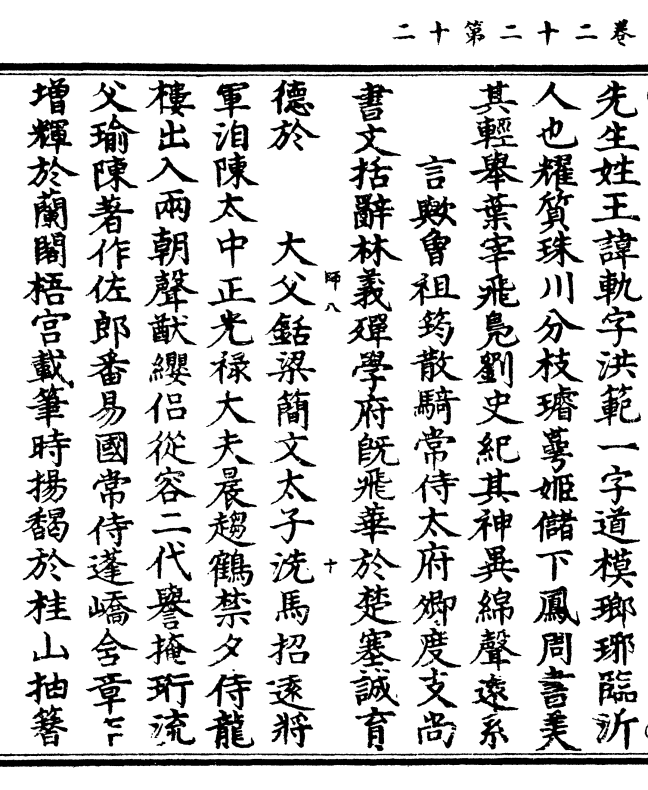 卷二十二第十二
先生姓王諱軌字洪範一字道模瑯琊臨沂
人也耀質珠川分枝璿萼姬儲下鳳周書美
其輕舉葉宰飛鳧劉史紀其神異綿聲遠系
言歟曾祖筠散騎常侍太府卿度支尚
書文括辭林義殫學府既飛華於楚塞誠育
師八
十
德於 大父銛梁簡文太子洗馬招遠將
軍洎陳太中正光祿大夫晨趨鶴禁夕侍龍
樓出入兩朝聲猷纓侣從容二代譽掩珩流
父瑜陳著作佐郎番易國常侍蓬嶠含章
增輝於蘭閣梧宮載筆時揚馥於桂山抽簪